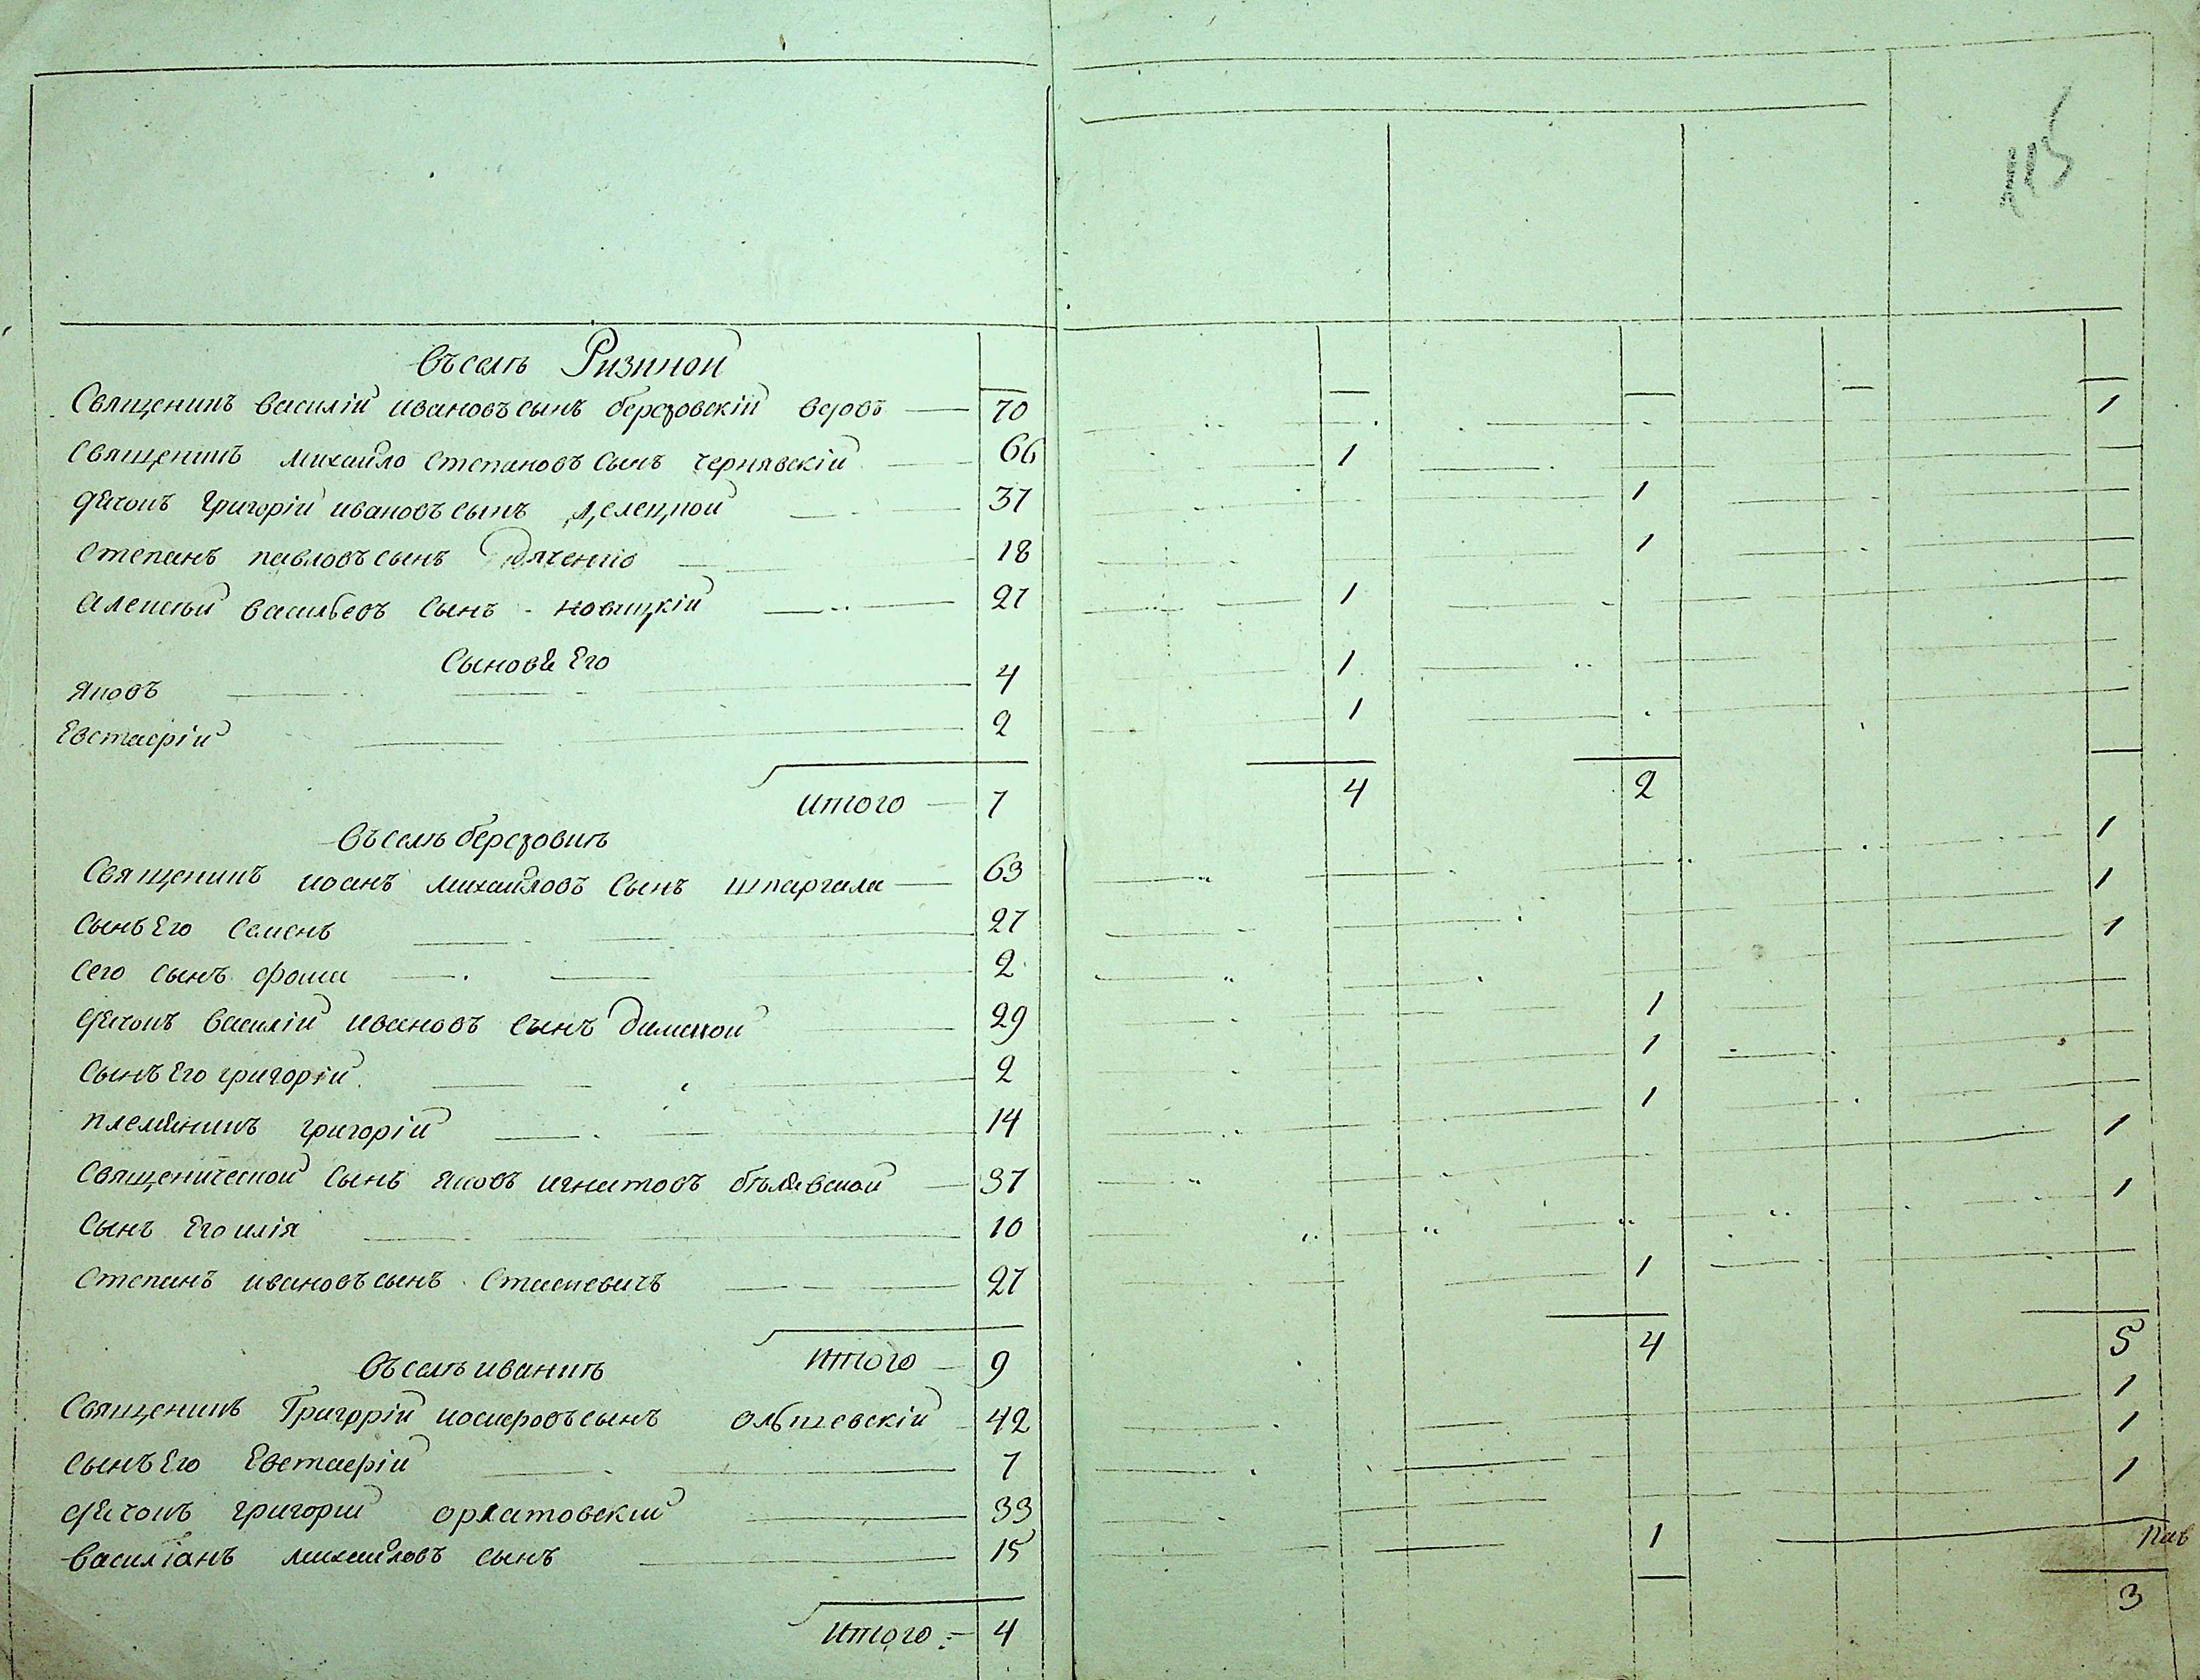 115
Въ селѣ Ризиной
Священикъ василій ивановъ сынъ березовскій вдовъ — 70 1
Священикъ михайло степановъ сынъ чернявскій 66 1
дячокъ григорій ивановъ сынъ 37 1
степанъ павловъ сынъ Дяченко 18 1
алексѣй васильевъ сынъ новицкій 27 1
Сыновя Его
яковъ 4 1
Евстафій 2 1
итого — 7 4 2
Въ селѣ березовкѣ
Священикъ иоанъ михайловъ Сынъ шпаргала — 63 1
Сынъ Его Семенъ 27 1
Сего сынъ фома 2 1
дячокъ василій ивановъ сынъ 29 1
Сынъ Его григорій 2 1
племянникъ григорій 14 1
Священической Сынъ яковъ игнатовъ бѣлявской — 37 1
Сынъ Его илія 10 1
Степанъ ивановъ сынъ Стаскевичъ 27 1
Итого — 9 4 5
Въ селѣ иванкѣ
Священикъ Григорій иосифовъ сынъ ольшевскій 42 1
сынъ Его Евстафій 7 1
дячокъ григорий орхатовский 33 1
василіанъ михайловъ сынъ 15 1
Итого — 4 3